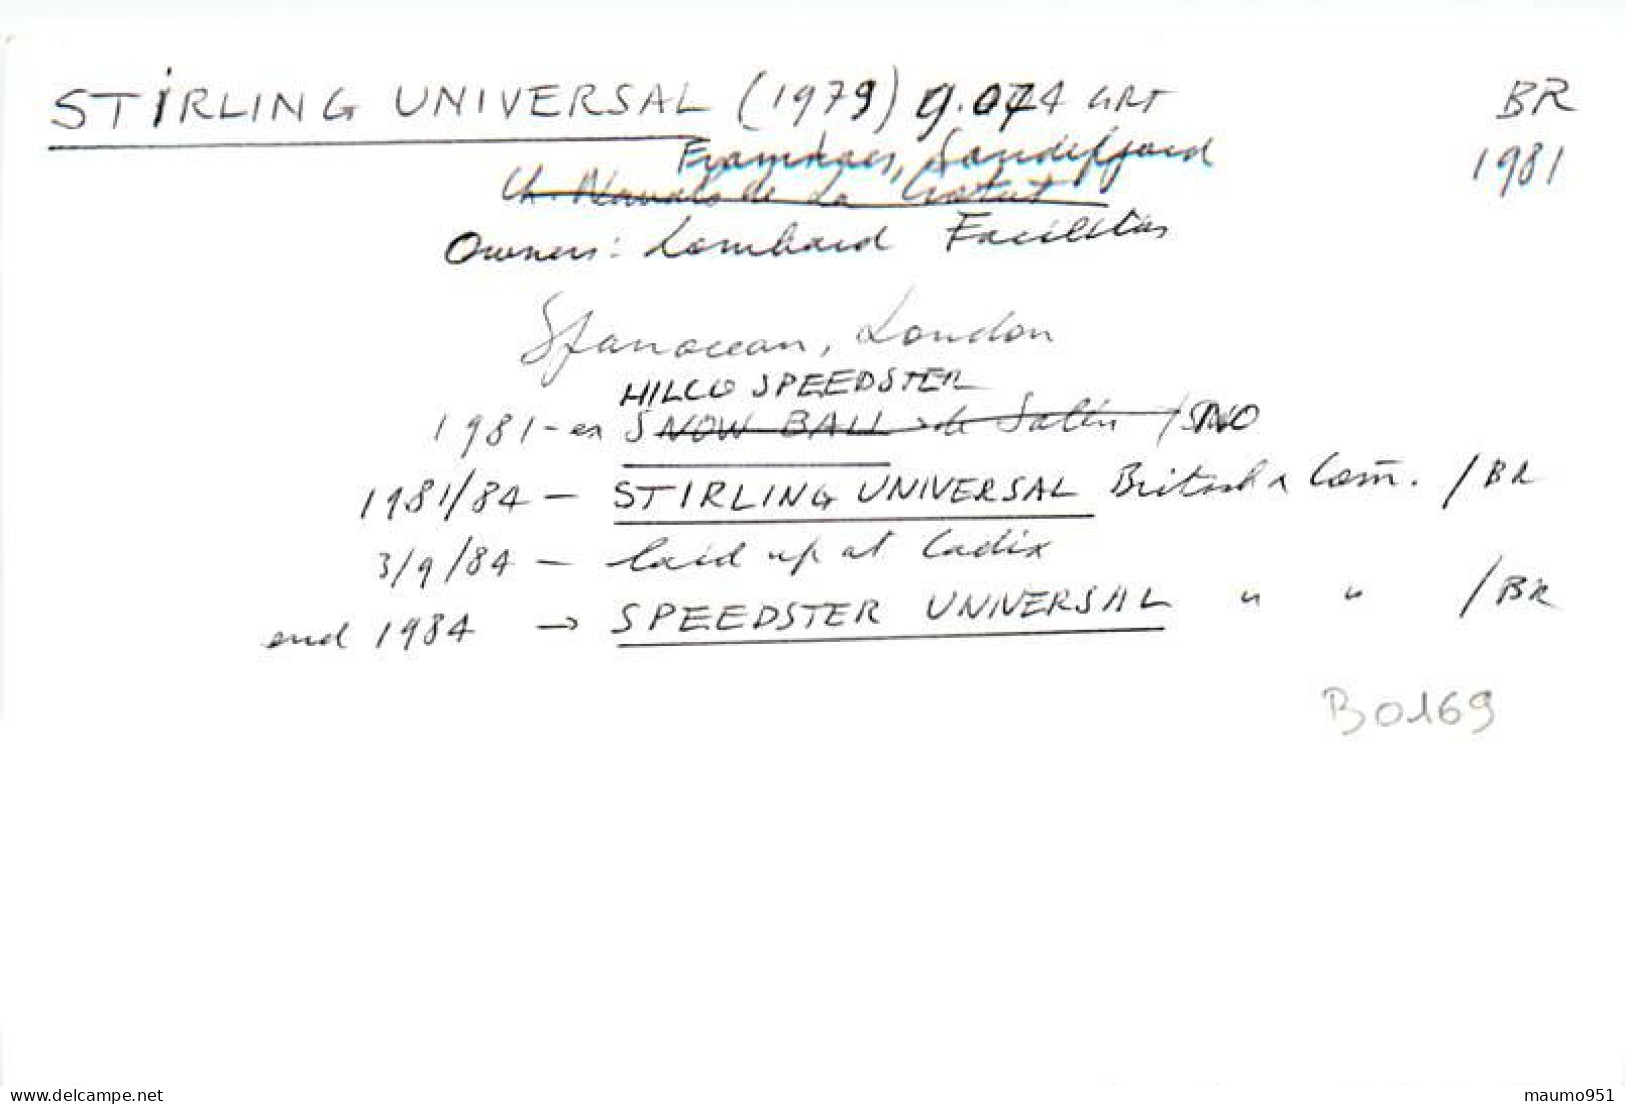 STIRLING UNIVERSAL (1979) 9.074 GRT BR
Framnaes, Sandefjord 1981
Ch. Navals de La Ciotat
Owners: Lombard Facilities
Spanocean, London
HILCO SPEEDSTER
1981 - ex SNOW BALL - de Salén / NO
1981/84 - STIRLING UNIVERSAL British & Com. / BR
3/9/84 - laid up at Cadix
end 1984 → SPEEDSTER UNIVERSAL " " / BR
B0169
delcampe.net
maumo951